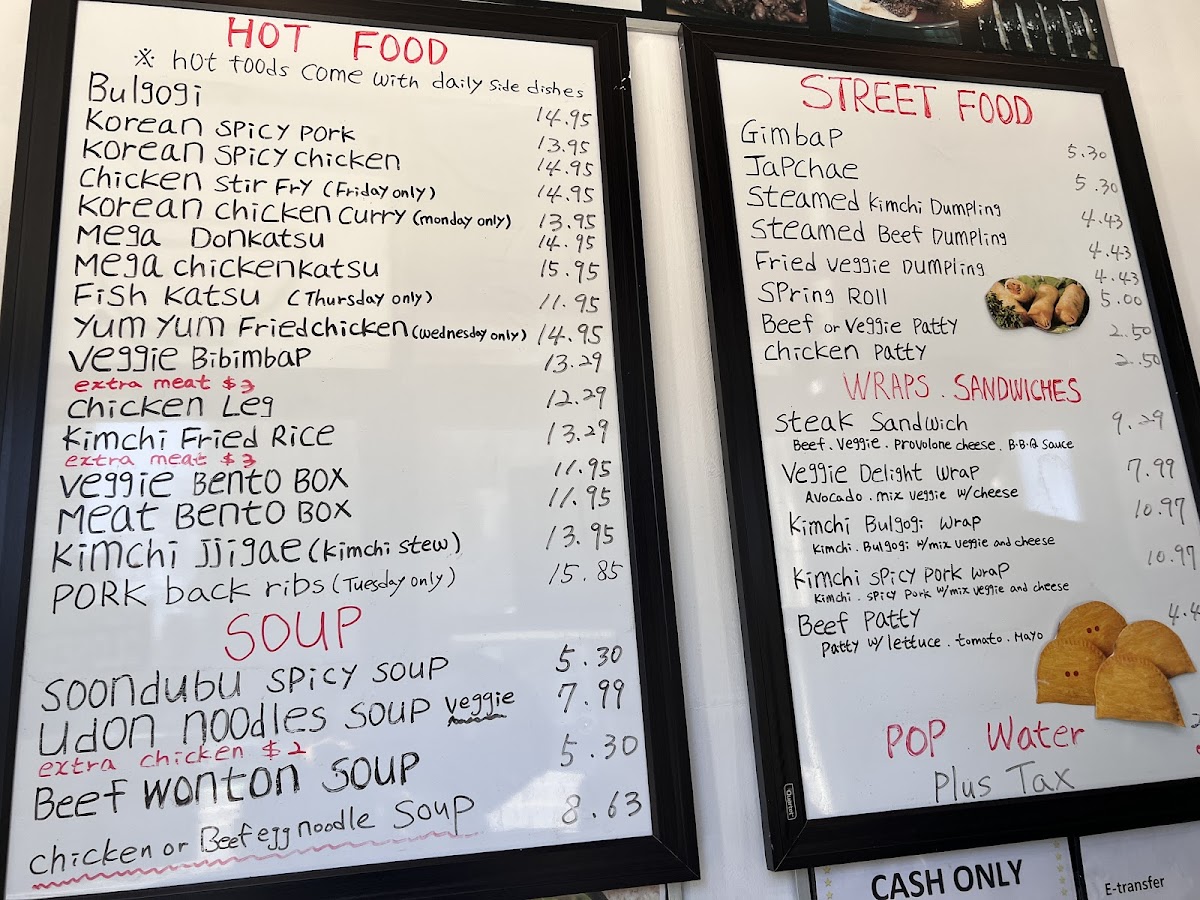 HOT FOOD
※ hot foods come with daily side dishes
Bulgogi 14.95
Korean spicy pork 13.95
Korean spicy chicken 14.95
Chicken stir fry (Friday only) 14.95
Korean chicken curry (monday only) 13.95
Mega Donkatsu 14.95
Mega chickenkatsu 15.95
Fish katsu (Thursday only) 11.95
Yum Yum Friedchicken (wednesday only) 14.95
Veggie Bibimbap 13.29
extra meat $3
Chicken Leg 12.29
Kimchi Fried Rice 13.29
extra meat $3
Veggie Bento Box 11.95
Meat Bento Box 11.95
Kimchi jjigae (kimchi stew) 13.95
Pork back ribs (Tuesday only) 15.85
SOUP
Soondubu spicy soup 5.30
Udon noodles soup veggie 7.99
extra chicken $2
Beef wonton soup 5.30
chicken or Beef egg noodle soup 8.63
STREET FOOD
Gimbap 5.30
Japchae 5.30
Steamed Kimchi Dumpling 4.43
Steamed Beef Dumpling 4.43
Fried veggie Dumpling 4.43
Spring Roll 5.00
Beef or veggie Patty 2.50
Chicken Patty 2.50
WRAPS . SANDWICHES
Steak Sandwich 9.29
Beef . veggie . provolone cheese . B.B.Q sauce
Veggie Delight wrap 7.99
Avocado . mix veggie w/cheese
Kimchi Bulgogi wrap 10.97
Kimchi . Bulgogi w/mix veggie and cheese
Kimchi spicy pork wrap 10.97
Kimchi . spicy pork w/mix veggie and cheese
Beef Patty
Patty w/ lettuce . tomato . Mayo
POP Water
Plus Tax
Quartet
CASH ONLY
E-transfer